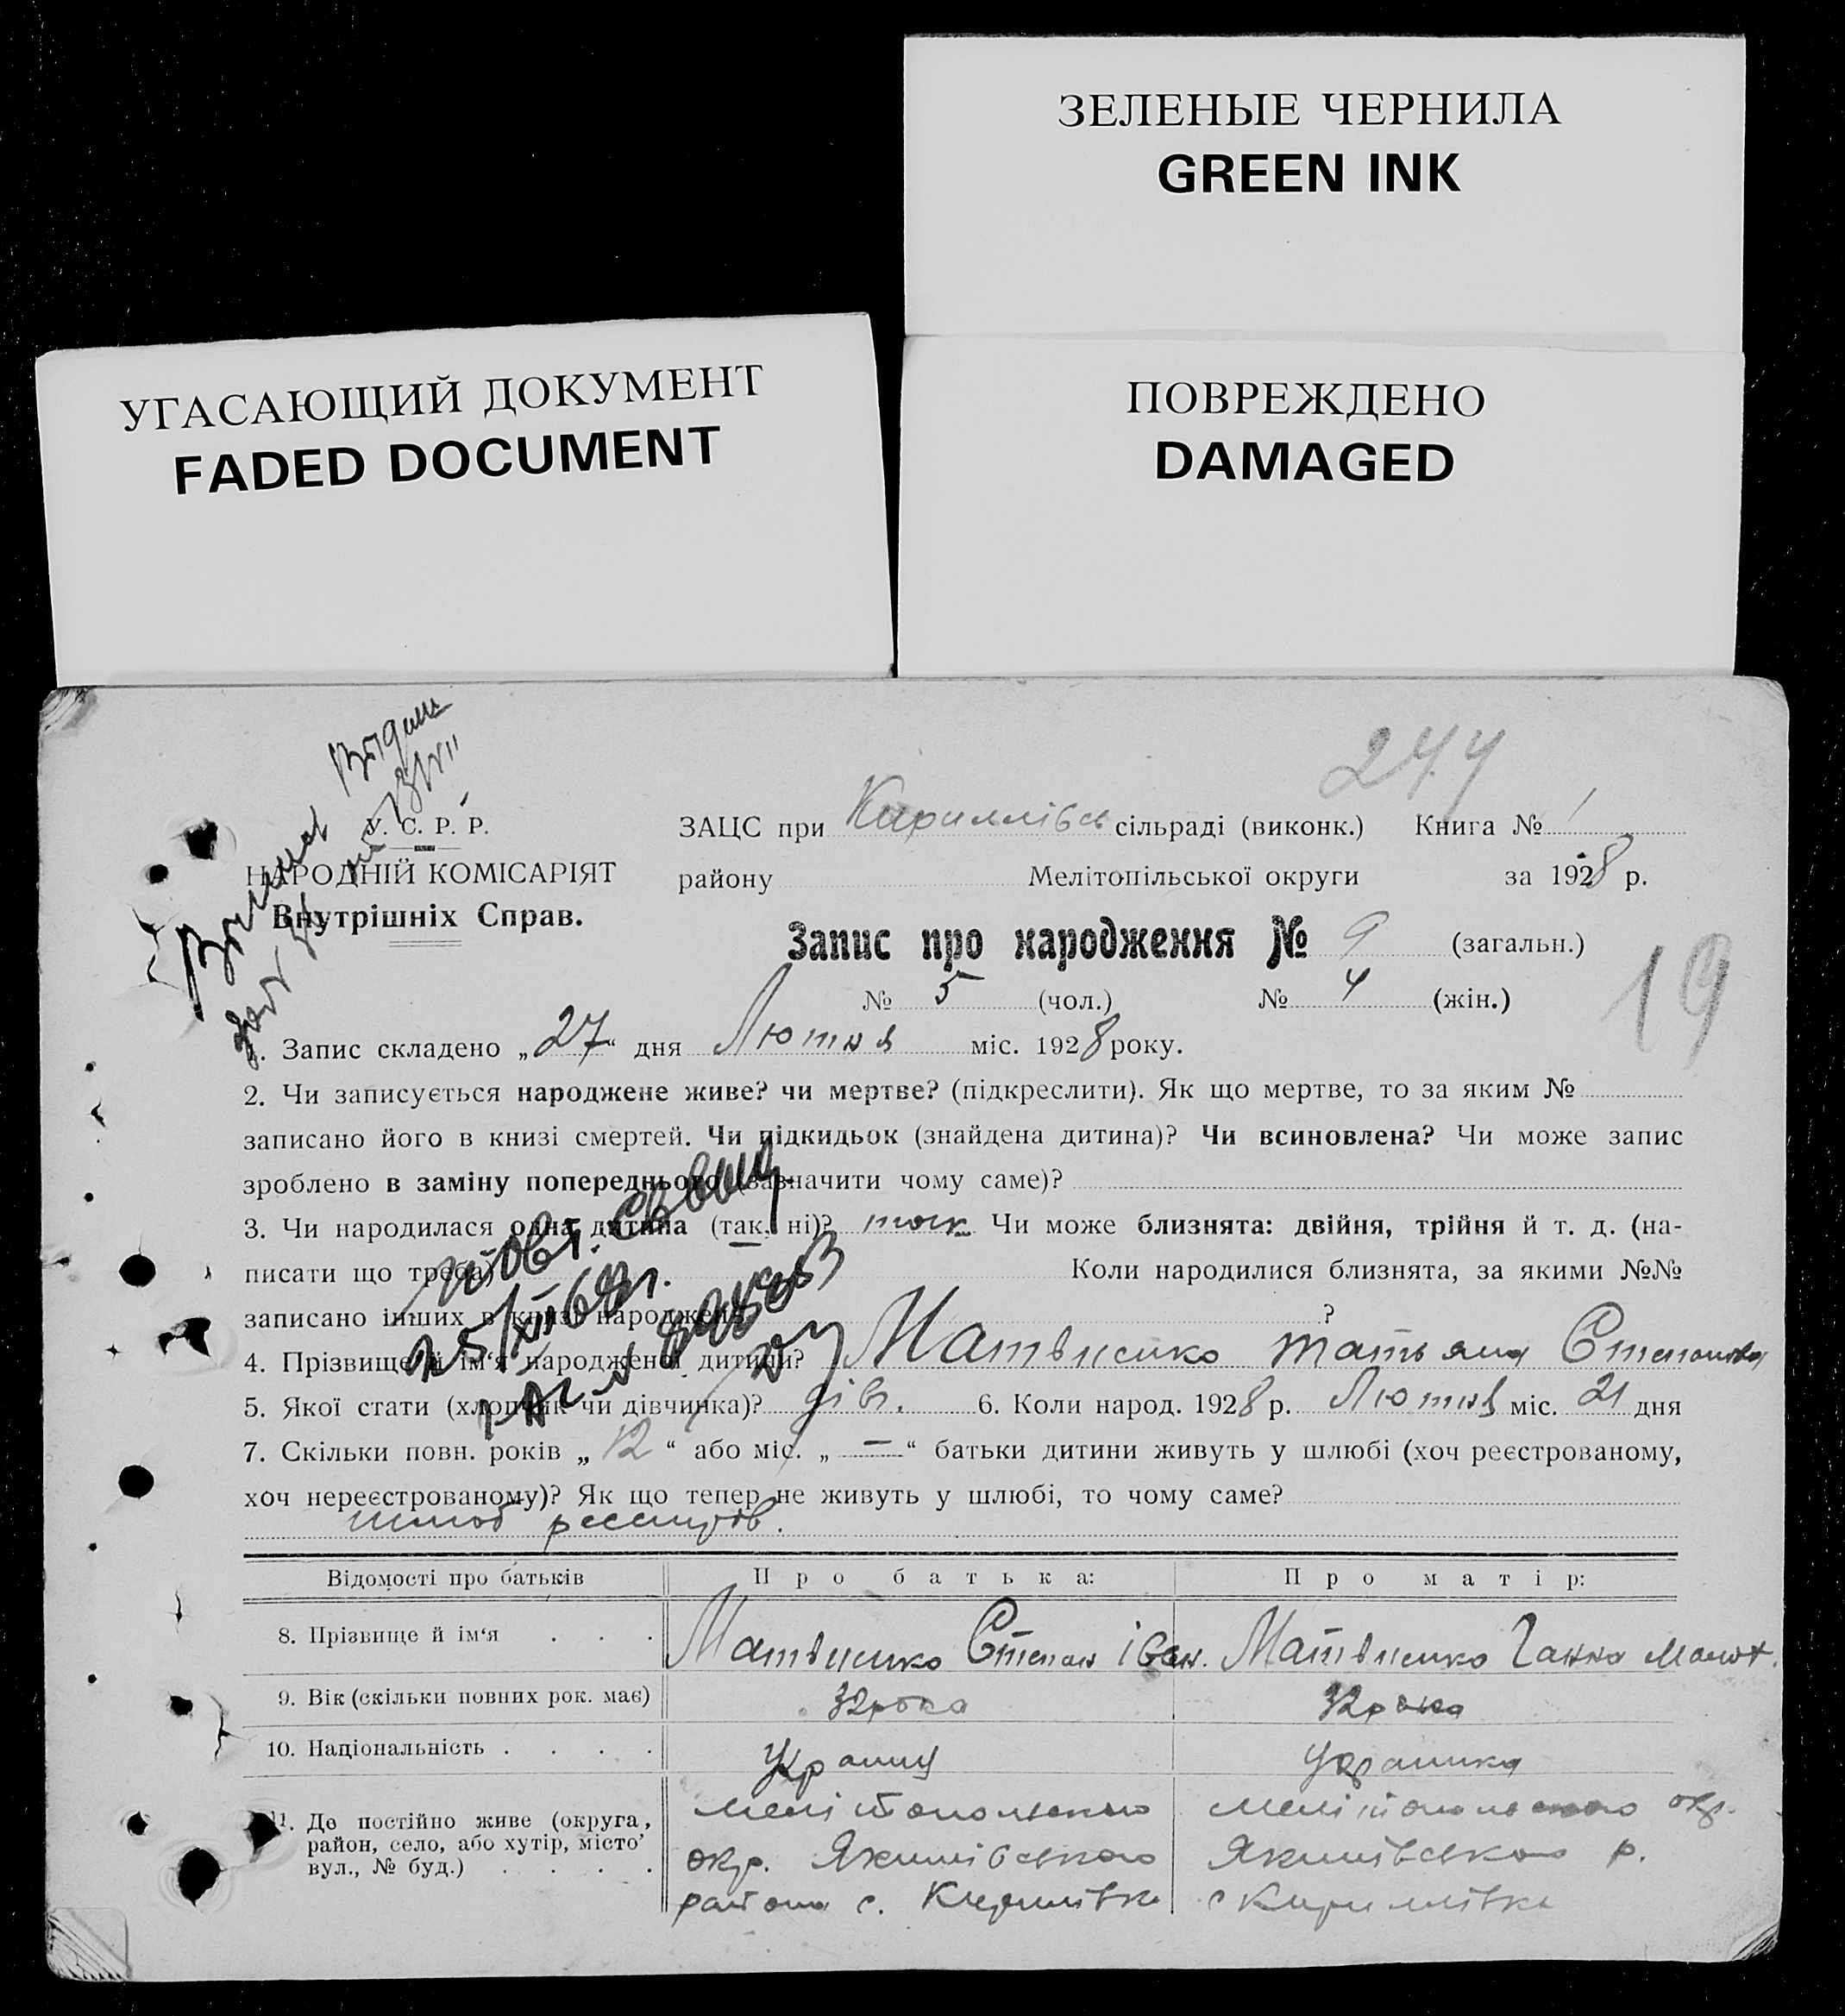 ЗЕЛЕНЫЕ ЧЕРНИЛА
GREEN INK
УГАСАЮЩИЙ ДОКУМЕНТ
FADED DOCUMENT
ПОВРЕЖДЕНО
DAMAGED
244
У. С. Р. Р.
НАРОДНІЙ КОМІСАРІЯТ
Внутрішніх Справ.
ЗАЦС при Кириллівсь сільраді (виконк.) Книга № 1
району Мелітопільської округи за 1928 р.
Запис про народження № 9 (загальн.)
№ 5 (чол.) № 4 (жін.)
19
1. Запис складено „27“ дня Лютня міс. 1928 року.
2. Чи записується народжене живе? чи мертве? (підкреслити). Як що мертве, то за яким №
записано його в книзі смертей. Чи підкидьок (знайдена дитина)? Чи всиновлена? Чи може запис
зроблено в заміну попереднього (зазначити чому саме)?
3. Чи народилася одна дитина (так, ні)? так Чи може близнята: двійня, трійня й т. д. (на-
писати що треба) Коли народилися близнята, за якими №№
записано інших в книзі народжень ?
4. Прізвище й ім‘я народженої дитини? Матвиенко Татьяна Степанова
5. Якої стати (хлопчик чи дівчинка)? дівч. 6. Коли народ. 1928 р. Лютня міс. 21 дня
7. Скільки повн. років „12“ або міс. „—“ батьки дитини живуть у шлюбі (хоч реєстрованому,
хоч нереєстрованому)? Як що тепер не живуть у шлюбі, то чому саме?
шлюб
повт. свыд.
25/XII 69г.
Відомості про батьків Про батька: Про матір:
8. Прізвище й ім‘я . . . Матвиенко Степан Іван. Матвиенко Ганна
9. Вік (скільки повних рок. має) 32 рока 32 рока
10. Національність . . . . Украинц Украинка
11. Де постійно живе (округа, район, село, або хутір, місто’ вул., № буд.) . . . .
Мелітопольского окр. Якимівського района с. Кирилівка
Мелітопольского окр. Якимівського р. с Кирилівка